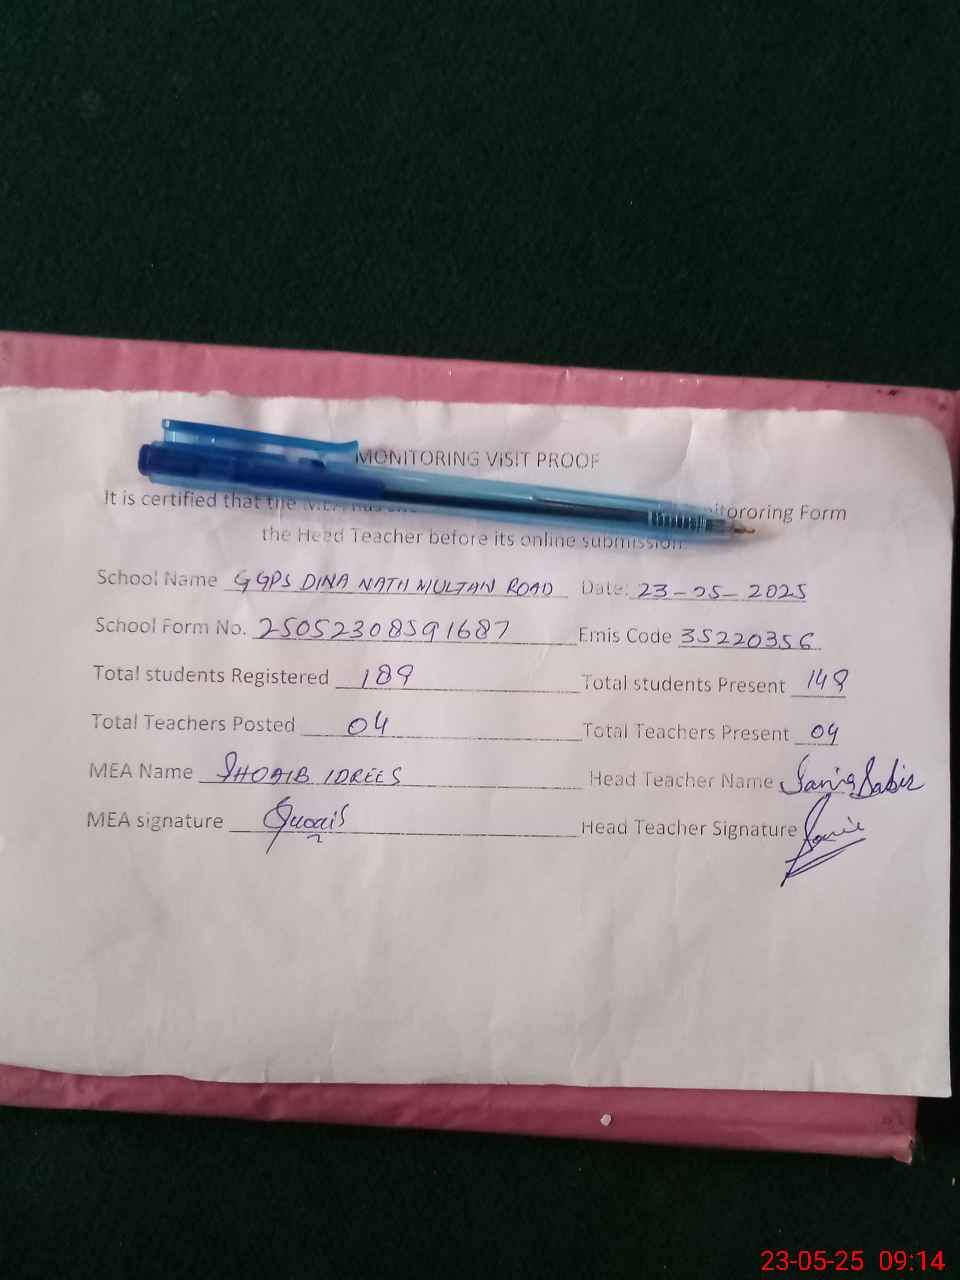 MONITORING VISIT PROOF
It is certified that the MEA has itororing Form
the Head Teacher before its online submission.
School Name GGPS DINA NATH MULTAN ROAD Date: 23-05-2025
School Form No. 25052308591687 Emis Code 35220356
Total students Registered 189 Total students Present 149
Total Teachers Posted 04 Total Teachers Present 04
MEA Name SHOAIB IDREES Head Teacher Name Sania Sabir
MEA signature Head Teacher Signature
23-05-25 09:14